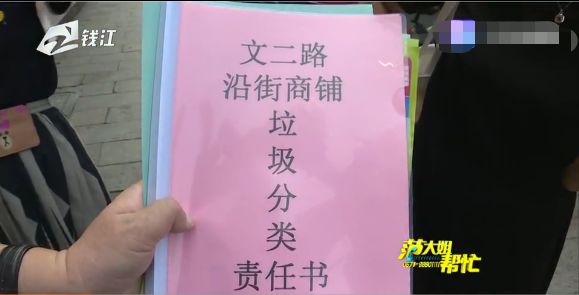 钱江
文二路
沿街商铺
垃
圾
分
类
责任书
范大姐
帮忙